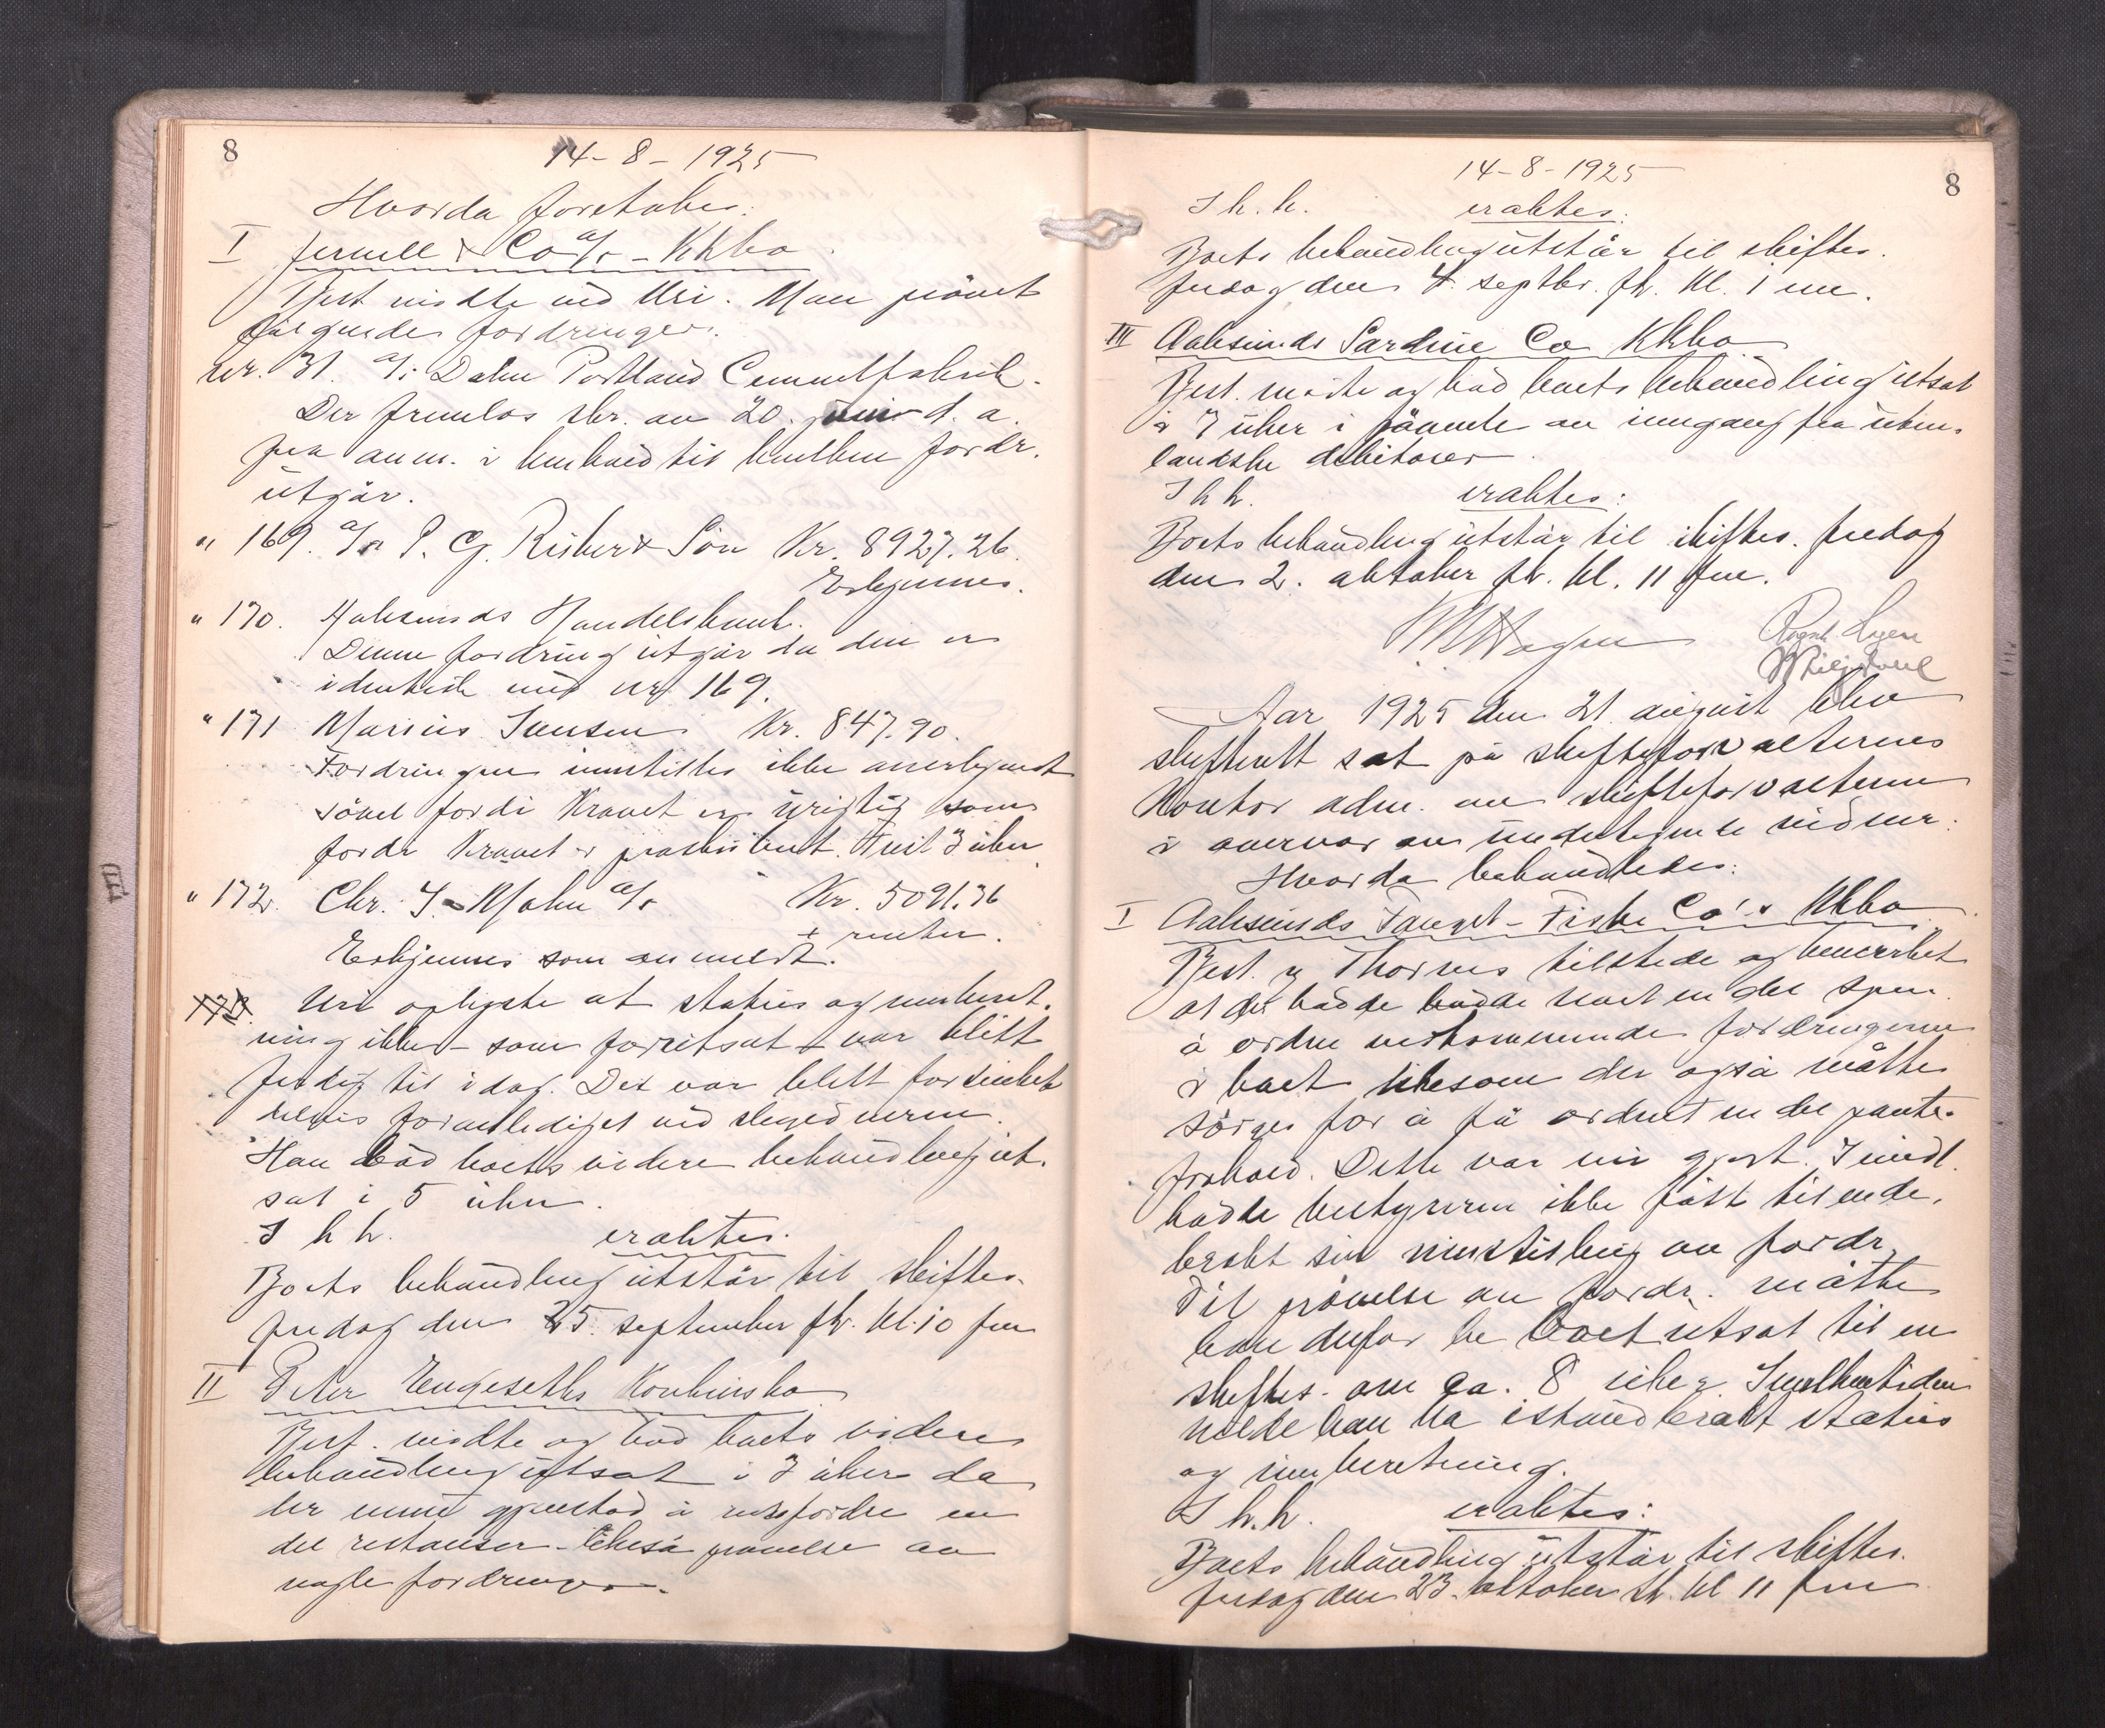 8
14-8-1925
Hvorda foretokes:
I Jervell & Co a/s - Kkbo
Best mødte ved Uri. Man prövet
følgende fordringer:
nr. 31. a/s Dalen Portland Cementfabrik.
Der fremlas skr. av 20. juni d. a.
fra anm. i henhold til hvilken fordr.
utgår.
" 169. a/s P. G. Rieber & Sön Kr. 8927.26
Erkjennes.
" 170. Aalesunds Handelsbank.
Denne fordring utgår da den er
identisk med nr. 169.
" 171 Marius Jensen Kr. 847.90.
Fordringen innstilles ikke anerkjendt
såvel fordi Kravet er uriktig som
fordi Kravet er prekludert. Frist 3 uker
" 172. Chr. J. Mohn a/s Kr. 5091.36
+ renter.
Erkjennes som anmeldt.
Uri oplyste at status og innberet-
ning ikke - som forutsat - var blitt
ferdig til idag. Det var blitt forsinket
delvis foranlediget ved
Han bad boets videre behandling ut-
sat i 5 uker.
I h h. eraktes.
Boets behandling utstår til skiftes.
fredag den 25. september fk. kl. 10 fm
II Peter Engeseths Konkursbo
Best. mødte og bad boets videre
behandling utsat i 3 uker da
der ennu gjenstod å innfordre en
del restanser - likeså prøvelse av
nogle fordringer.
14-8-1925
8
I h. h. eraktes:
Boets behandling utstår til skiftes.
fredag den 4. septbr. fk. kl. 1 em.
III Aalesunds Sardine Co Kkbo
Best. mødte og bad boets behandling utsat
i 7 uker i påvente av inngang fra uten-
landske debitorer.
I h h. eraktes:
Boets behandling utstår til skiftes. fredag
den 2. oktober fk. kl. 11 fm.
Aar 1925 den 21 august blev
skifterett sat på skifteforvalterens
Kontor adm. av skifteforvalteren
i overvær av undertegnede vidner.
Hvorda behandledes:
I Aalesunds Fangst- & Fiske Co's Kkbo
Best. Thornes tilstede og bemerket
at det hadde hadde vært en del
å ordne vedkommende fordringerne
i boet likesom der også måtte
sørges for å få ordnet en del pante-
forhold. Dette var nu gjort. Imidl.
hadde bestyreren ikke fått tilende-
brakt sin innstilling av fordr.
Til prøvelse av fordr. måtte
han derfor be boet utsat til en
skiftes. om ca. 8 uker. I mellemtiden
vilde han ha istandbrakt status
og innberetning.
I h. h. eraktes:
Boets behandling utstår til skiftes.
fredag den 23. oktober fk. kl 11 fm